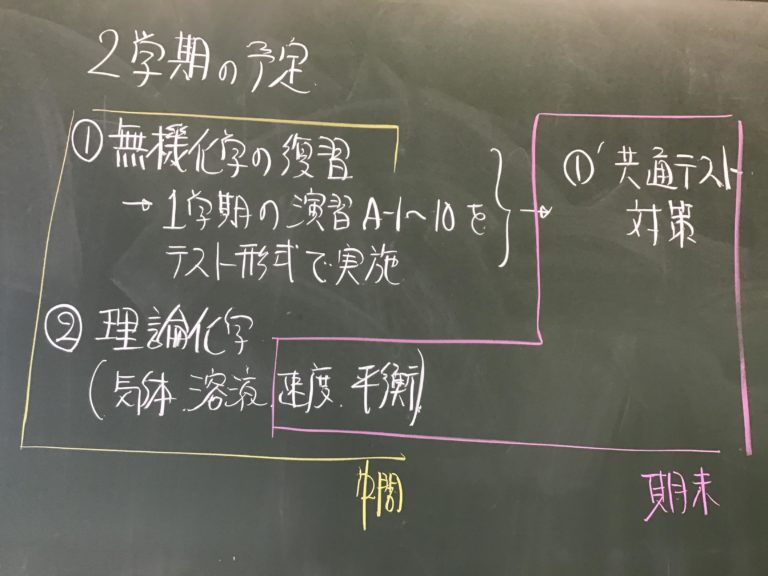 2学期の予定
① 無機化学の復習
→ 1学期の演習 A-1~10 を
テスト形式で実施
→ ①' 共通テスト
対策
② 理論化学
(気体.溶液.速度.平衡)
中間
期末